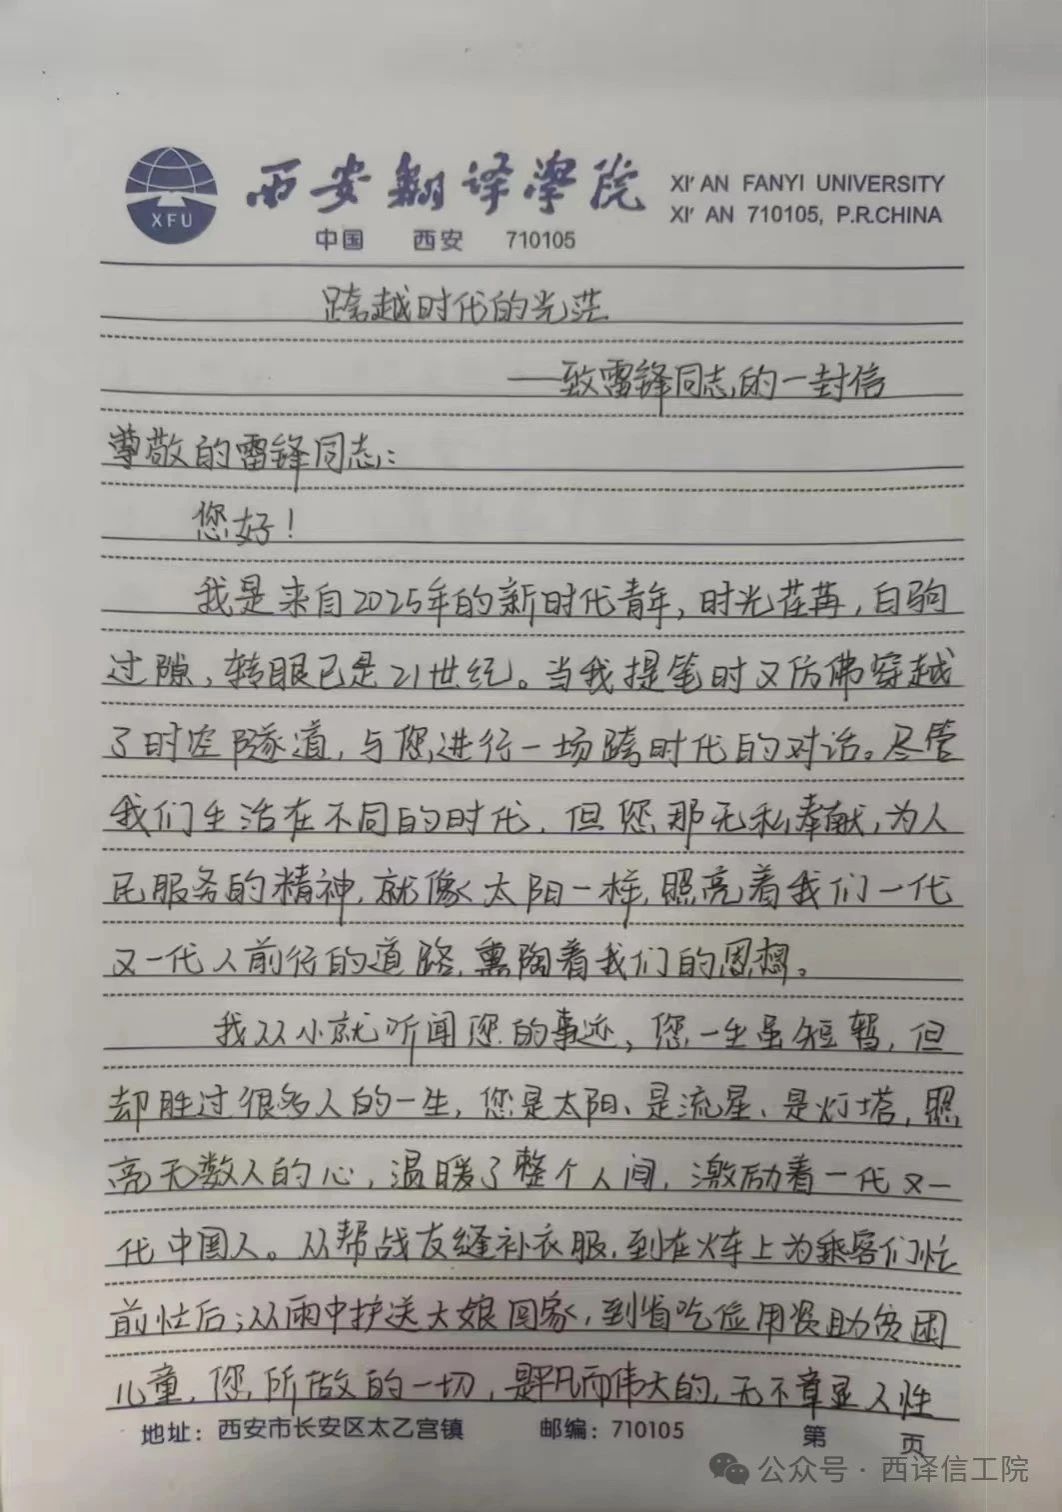 XFU
西安翻译学院
XI'AN FANYI UNIVERSITY
XI' AN 710105, P.R.CHINA
中国 西安 710105
跨越时代的光茫
——致雷锋同志的一封信
尊敬的雷锋同志：
您好！
我是来自2025年的新时代青年，时光荏苒，白驹
过隙，转眼已是21世纪。当我提笔时又仿佛穿越
了时空隧道，与您进行一场跨时代的对话。尽管
我们生活在不同的时代，但您那无私奉献，为人
民服务的精神，就像太阳一样，照亮着我们一代
又一代人前行的道路，熏陶着我们的思想。
我从小就听闻您的事迹，您一生虽短暂，但
却胜过很多人的一生，您是太阳、是流星、是灯塔，照
亮无数人的心，温暖了整个人间，激励着一代又一
代中国人。从帮战友缝补衣服，到在火车上为乘客们忙
前忙后；从雨中护送大娘回家，到省吃俭用资助贫困
儿童，您所做的一切，是平凡而伟大的，无不章显人性
地址：西安市长安区太乙宫镇 邮编：710105 第 页
公众号·西译信工院